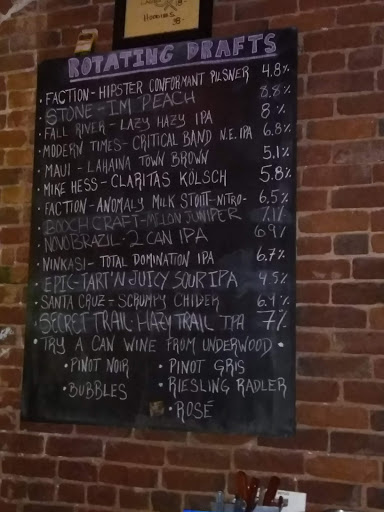 HOODIES 38-
ROTATING DRAFTS
• FACTION - HIPSTER CONFORMANT PILSNER 4.8%
STONE - I'M PEACH 8.8%
• FALL RIVER - LAZY HAZY IPA 8%
• MODERN TIMES - CRITICAL BAND N.E. IPA 6.8%
• MAUI - LAHAINA TOWN BROWN 5.1%
• MIKE HESS - CLARITAS KÖLSCH 5.8%
• FACTION - ANOMALY MILK STOUT - NITRO - 6.5%
• BOOCH CRAFT - MELON JUNIPER 7.1%
• NOVO BRAZIL - 2 CAN IPA 6.9%
• NINKASI - TOTAL DOMINATION IPA 6.7%
• EPIC - TART 'N JUICY SOUR IPA 4.5%
• SANTA CRUZ - SCRUMPY CHIDER 6.4%
• SECRET TRAIL - HAZY TRAIL IPA 7%
• TRY A CAN WINE FROM UNDERWOOD •
• PINOT NOIR • PINOT GRIS
• BUBBLES • RIESLING RADLER
• ROSÉ